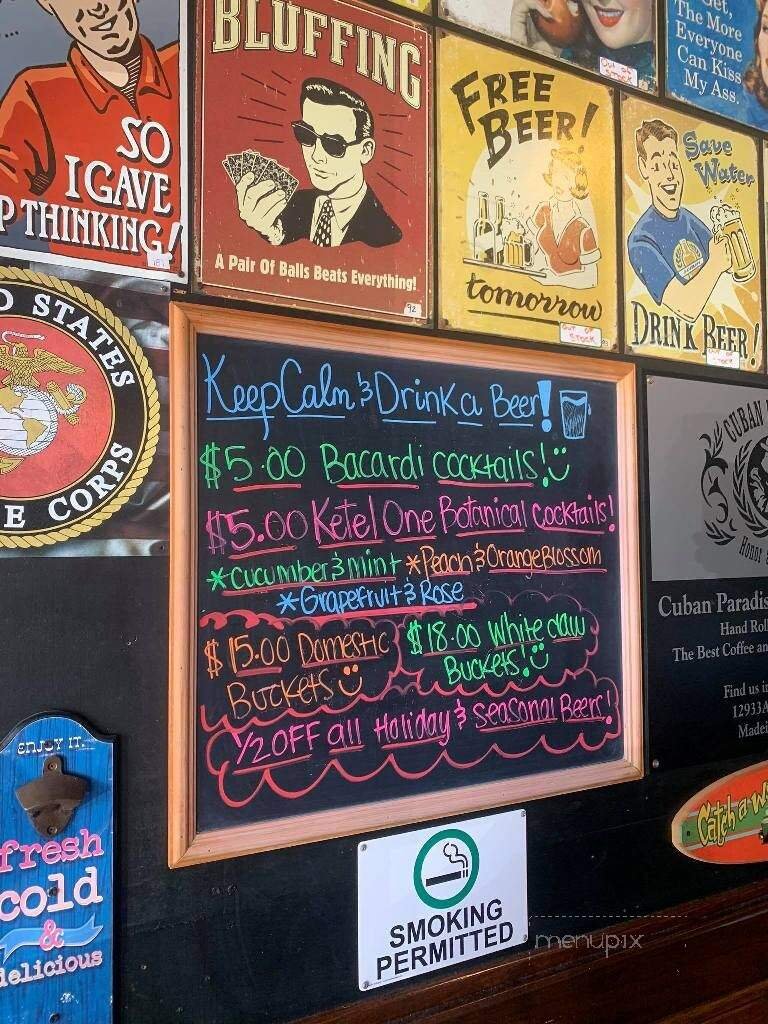 SO
I GAVE
P THINKING!
BLUFFING
A Pair Of Balls Beats Everything!
92
FREE
BEER!
tomorrow
OUT OF
STOCK
OUT OF
Get,
The More
Everyone
Can Kiss
My Ass.
Save
Water
DRINK BEER!
OUT OF
STOCK
D STATES
E CORPS
Keep Calm & Drink a Beer!
$5.00 Bacardi cocktails!
$5.00 Ketel One Botanical cocktails!
*cucumber & mint *Peach & Orange Blossom
*Grapefruit & Rose
$15.00 Domestic
Buckets
$18.00 White claw
Buckets!
1/2 OFF all Holiday & seasonal Beers!
CUBAN
Cuban Paradis
Hand Roll
The Best Coffee an
Find us in
12933A
Madei
Catch a w
ENJOY IT.
fresh
cold
&
delicious
SMOKING
PERMITTED
menupix